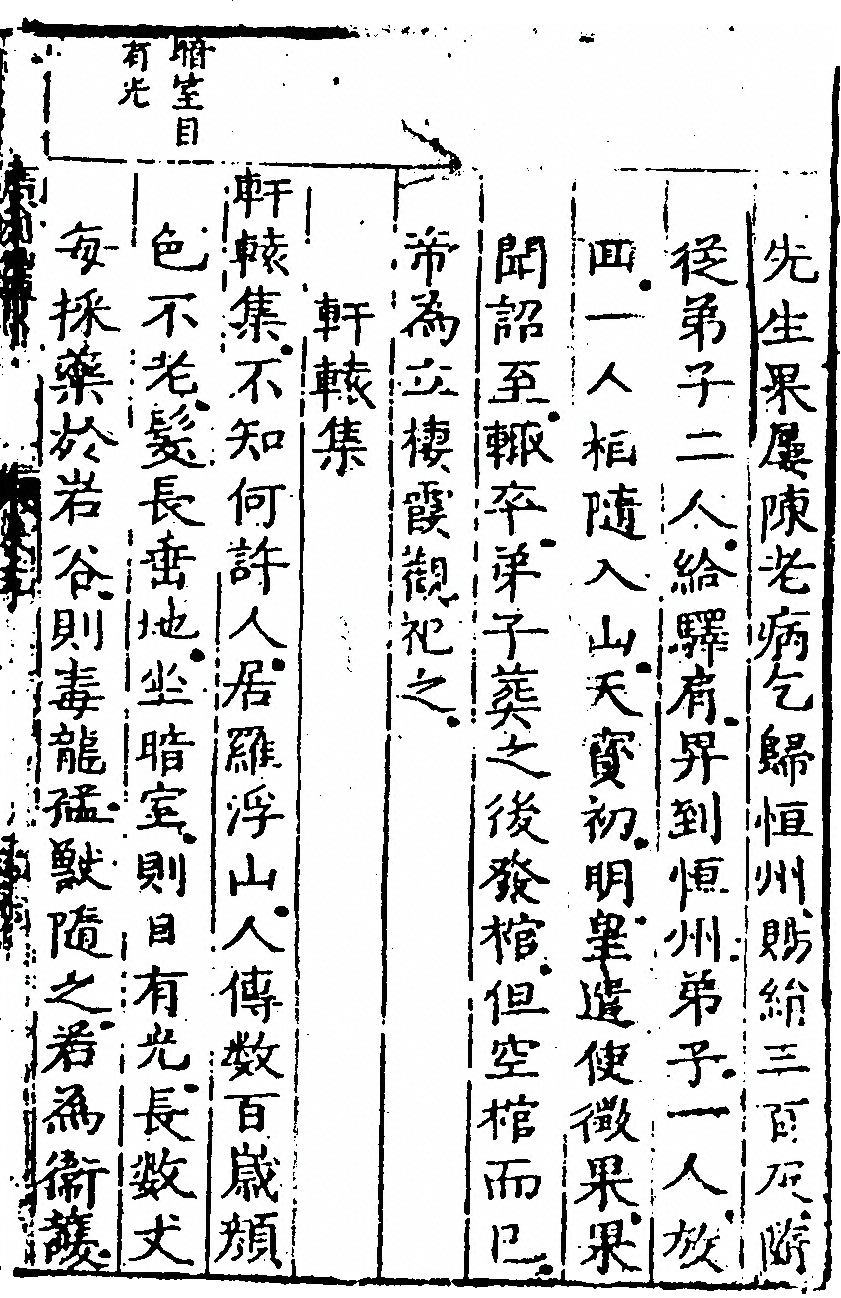 先生果屢陳老病乞歸恒州賜絹三百疋隨
從弟子二人給驛肩舁到恒州弟子一人放
回一人相隨入山天寶初明皇遣使徵果果
聞詔至輙卒弟子葬之後發棺但空棺而已
帝為立棲霞觀祀之
軒轅集
暗室目
有光
軒轅集不知何許人居羅浮山人傳数百歲顏
色不老髮長垂地坐暗室則目有光長数丈
每採藥於岩谷則毒龍猛獸隨之若為衞護